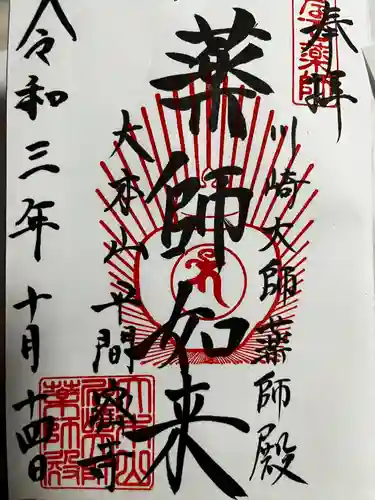 奉拝
川崎大師薬師殿
薬師如来
大本山平間寺
令和三年十月十四日